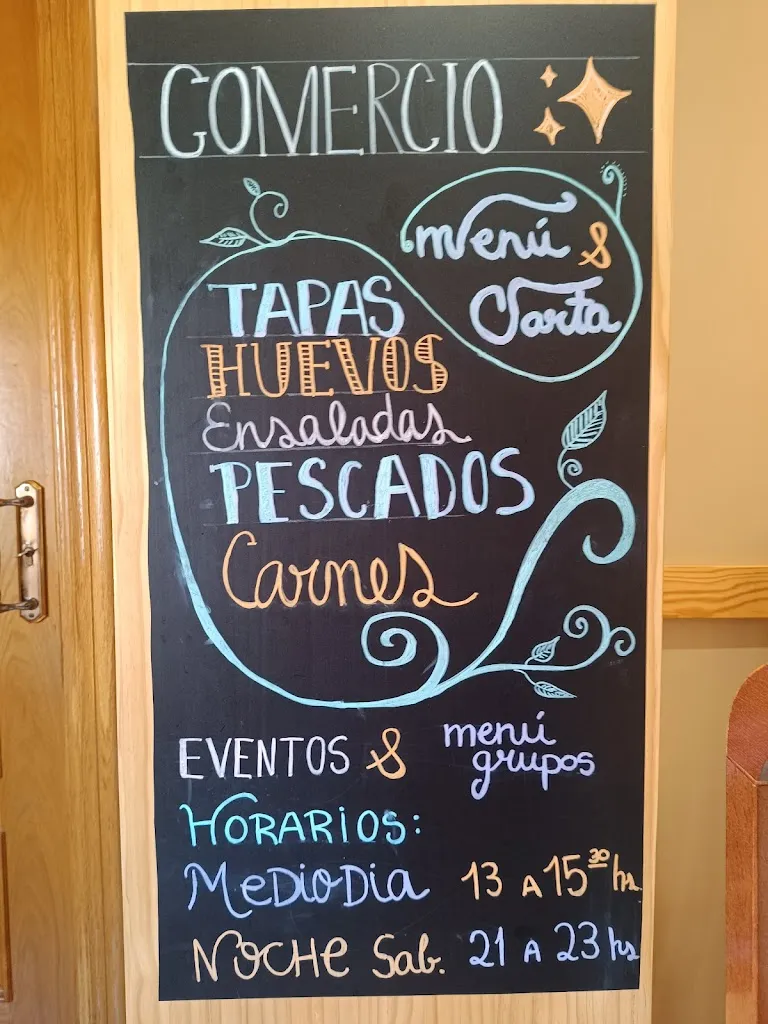 COMERCIO
menú &
Carta
TAPAS
HUEVOS
Ensaladas
PESCADOS
Carnes
EVENTOS & menú grupos
HORARIOS:
MEDIODIA 13 A 15³⁰ hs
NOCHE Sab. 21 A 23 hs